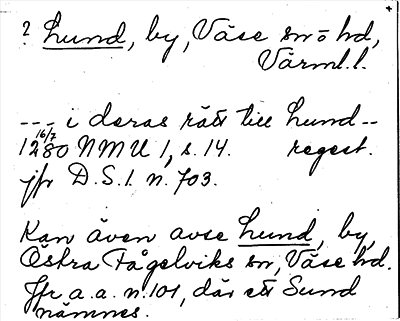 ? Lund, by, Väse sn o hd,
Värml. l.
--- i deras rätt till Lund --
16/7
1280 NMU 1, s. 14. regest.
jfr D.S. 1. n. 703.
Kan även avse Lund, by,
Östra Fågelviks sn, Väse hd.
Jfr a.a. n. 101, där ett Sund
nämnes.